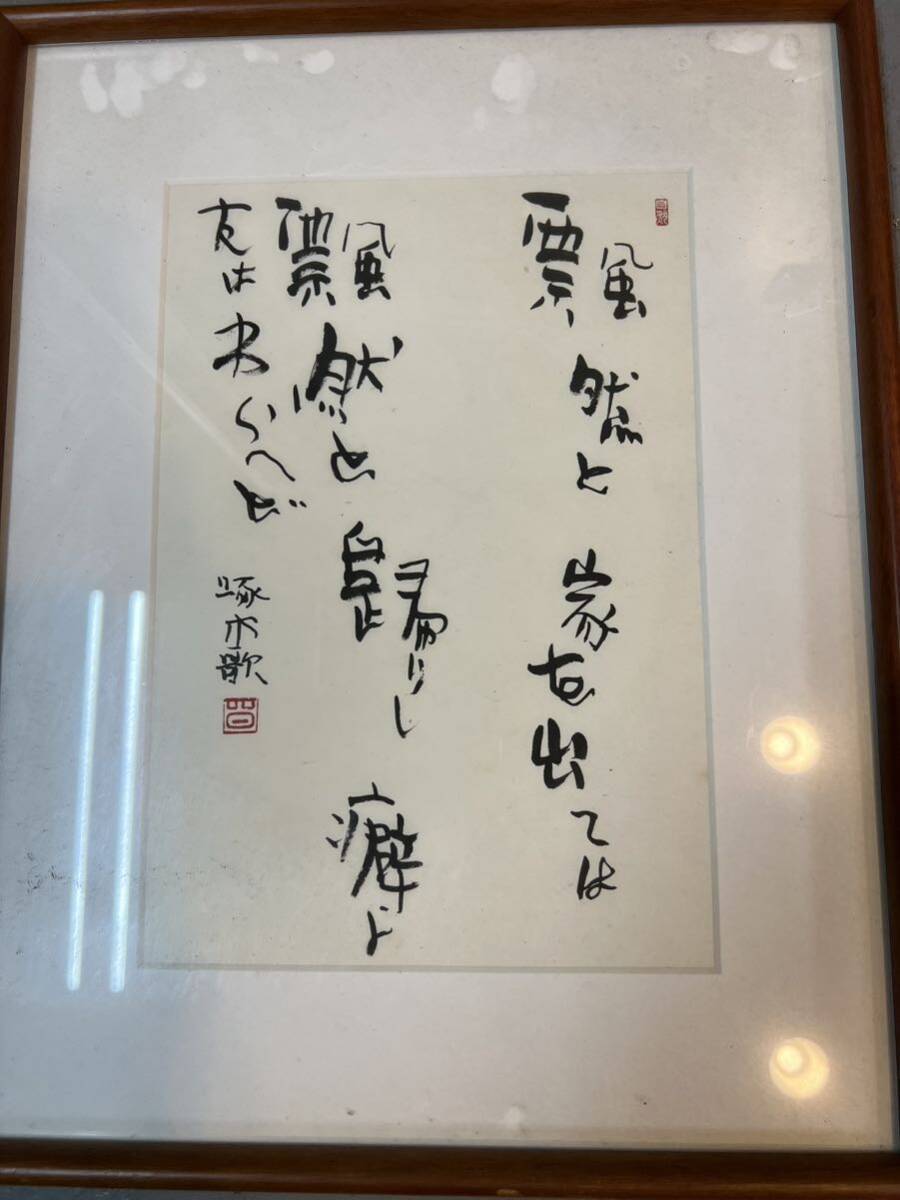 飄然と家を出ては
飄然と歸りし癖よ
友はわらへど
啄木歌